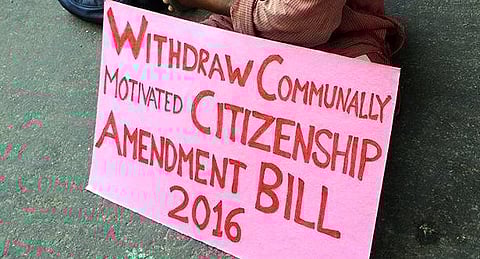 WITHDRAW COMMUNALLY
MOTIVATED CITIZENSHIP
AMENDMENT BILL
2016